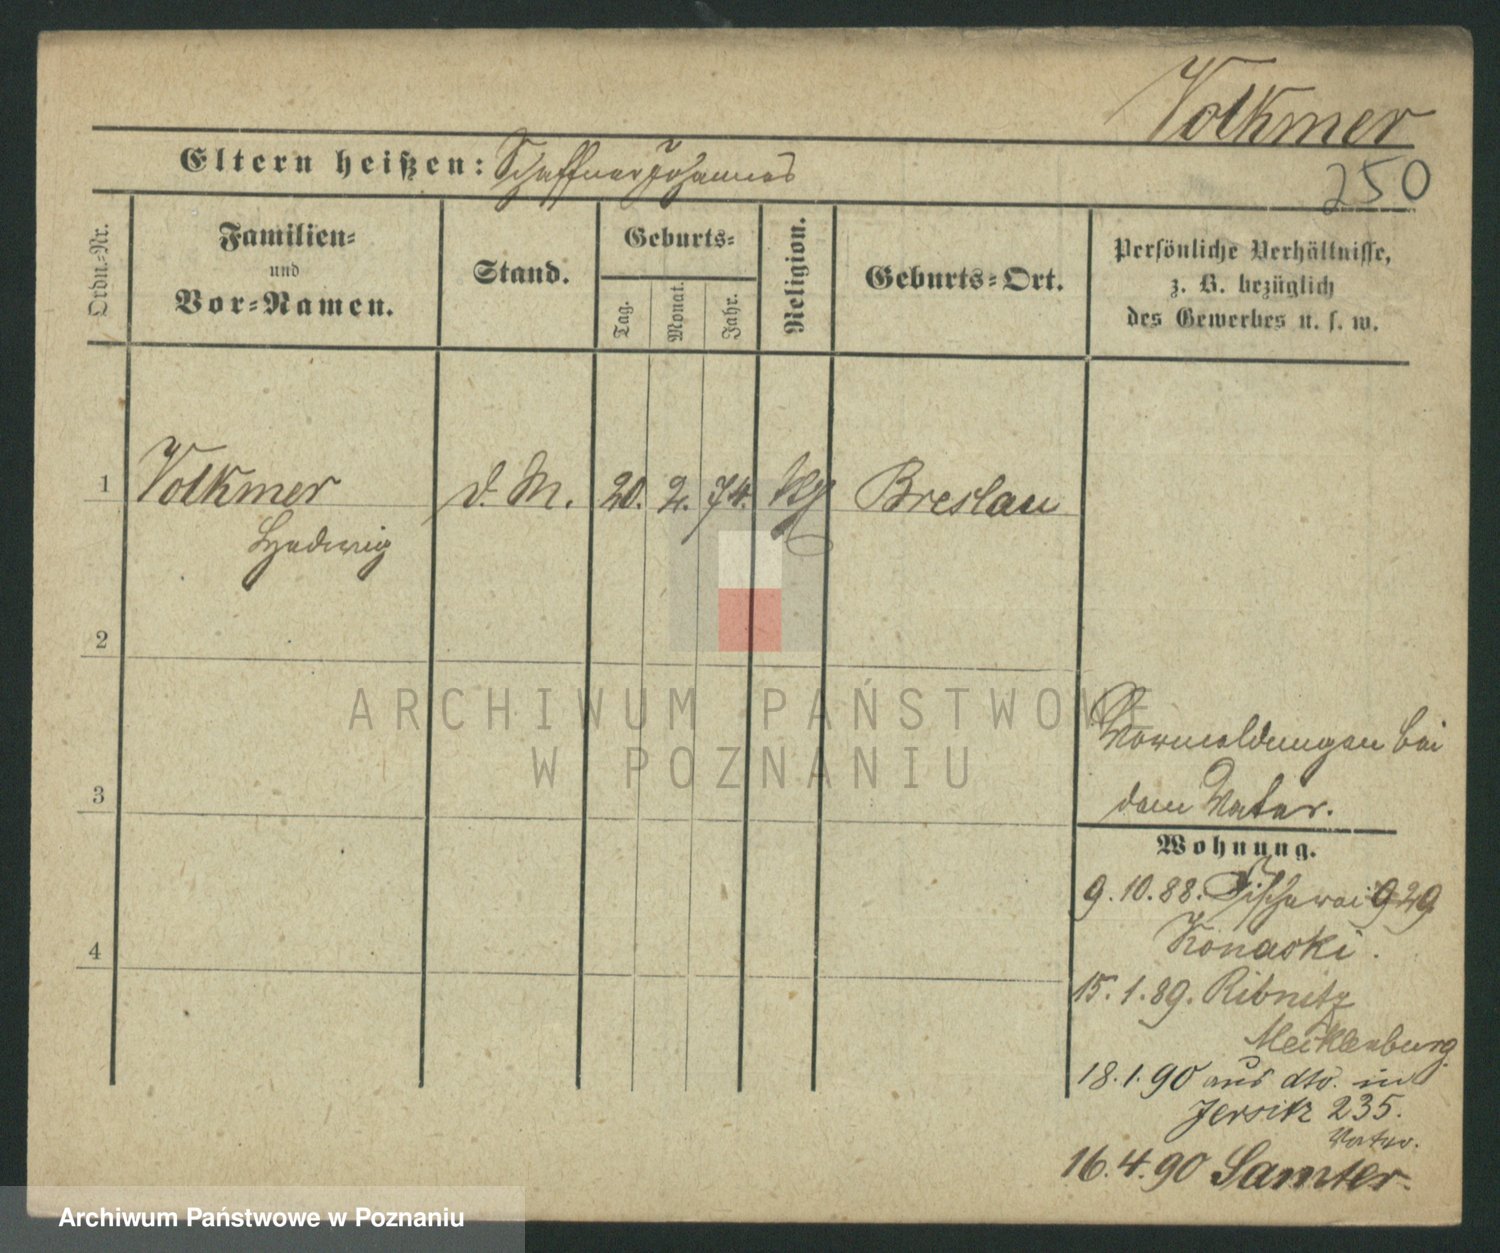 Volkmer
Eltern heißen: Schaffner Johannes
250
Ordn.-Nr.
Familien-
und
Vor-Namen.
Stand.
Geburts-
Tag.
Monat.
Jahr.
Religion.
Geburts-Ort.
Persönliche Verhältnisse,
z. B. bezüglich
des Gewerbes u. s. w.
1 Volkmer d. M. 20. 2. 74. Breslau
Hedwig
2
ARCHIWUM PAŃSTWOWE
W POZNANIU
Vormeldungen bei
dem Vater.
3
Wohnung.
9.10.88. Fischerei 929
Konaski.
4
15.1.89. Ribnitz
Mecklenburg.
18.1.90 aus dto. in
Jersitz 235.
Vater.
16.4.90 Samter.
Archiwum Państwowe w Poznaniu